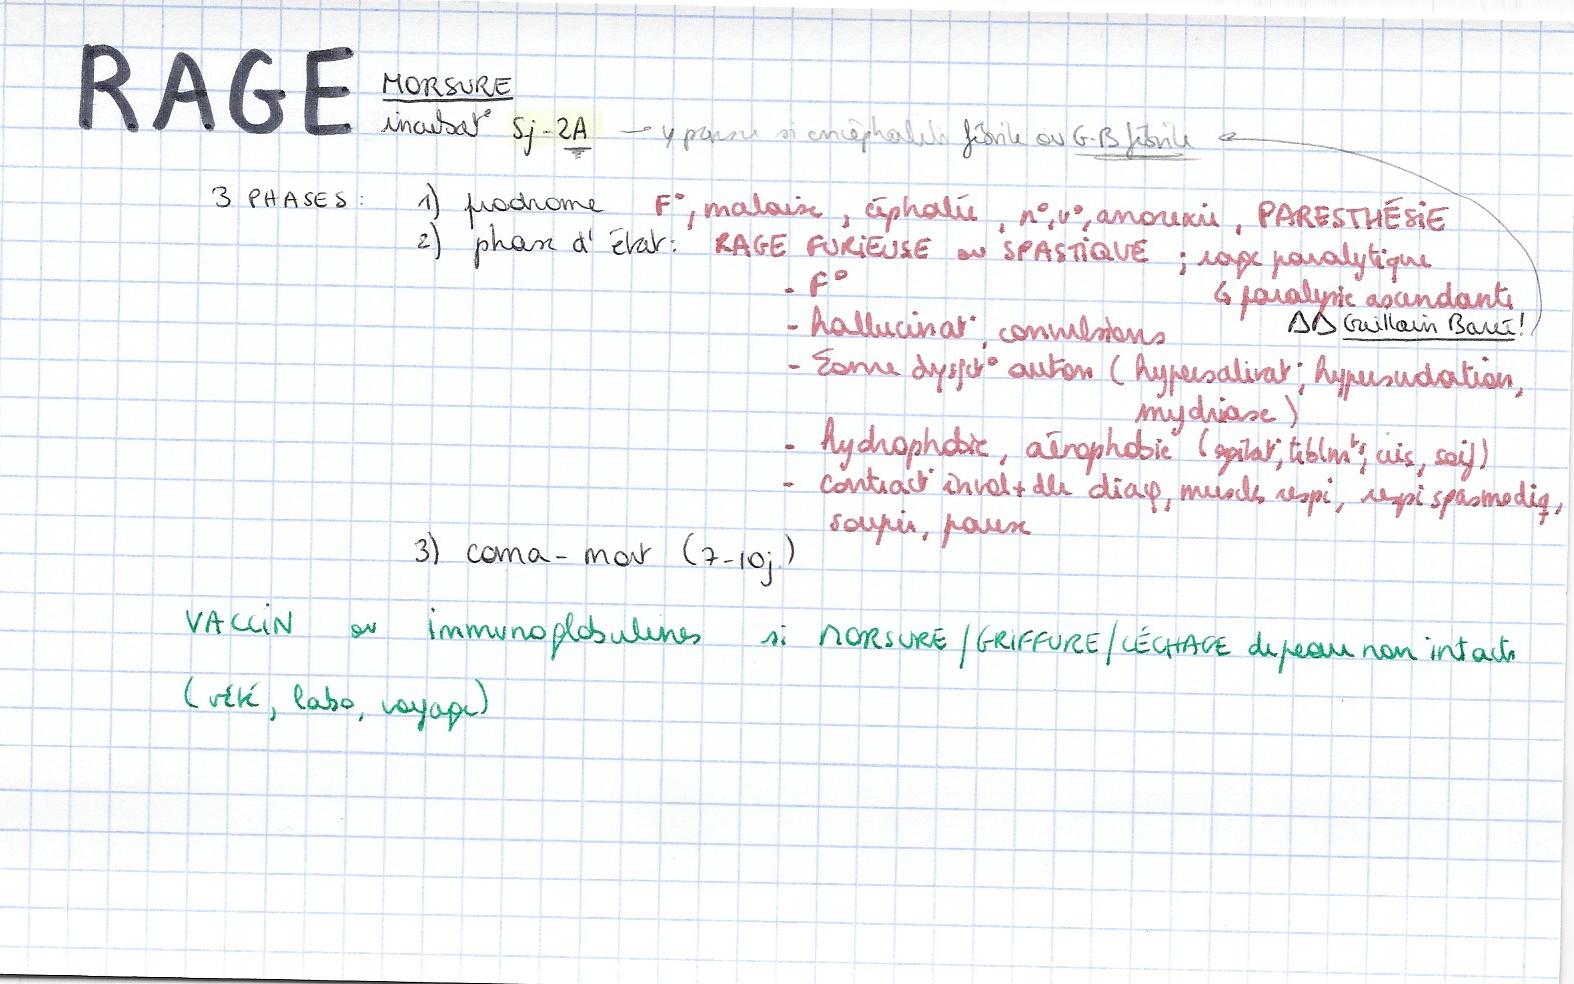 RAGE
MORSURE
incubat° 5j-2A → y penser si encéphalite fébrile ou G-B fébrile
3 PHASES : 1) prodrome F°, malaise, céphalée, n°, v°, anorexie, PARESTHÉSiE
2) phase d'État : RAGE FURiEUSE ou SPASTiQUE ; rage paralytique
- F°
↳ paralysie ascendante
- hallucinat°, convulsions
ΔΔ Guillain Barré !
- dysfct° auton (hypersalivat°; hypersudation,
mydriase)
- hydrophobie, aérophobie (agitat°, tcblmt, cris, soif)
- contract° invol+ diaφ, muscles respi, respi spasmodiq,
soupir, pause
3) coma - mort (7-10j)
VACCiN ou immunoglobulines si MORSURE/GRiFFURE/LÉCHAGE de peau non intacte
(vété, labo, voyage)